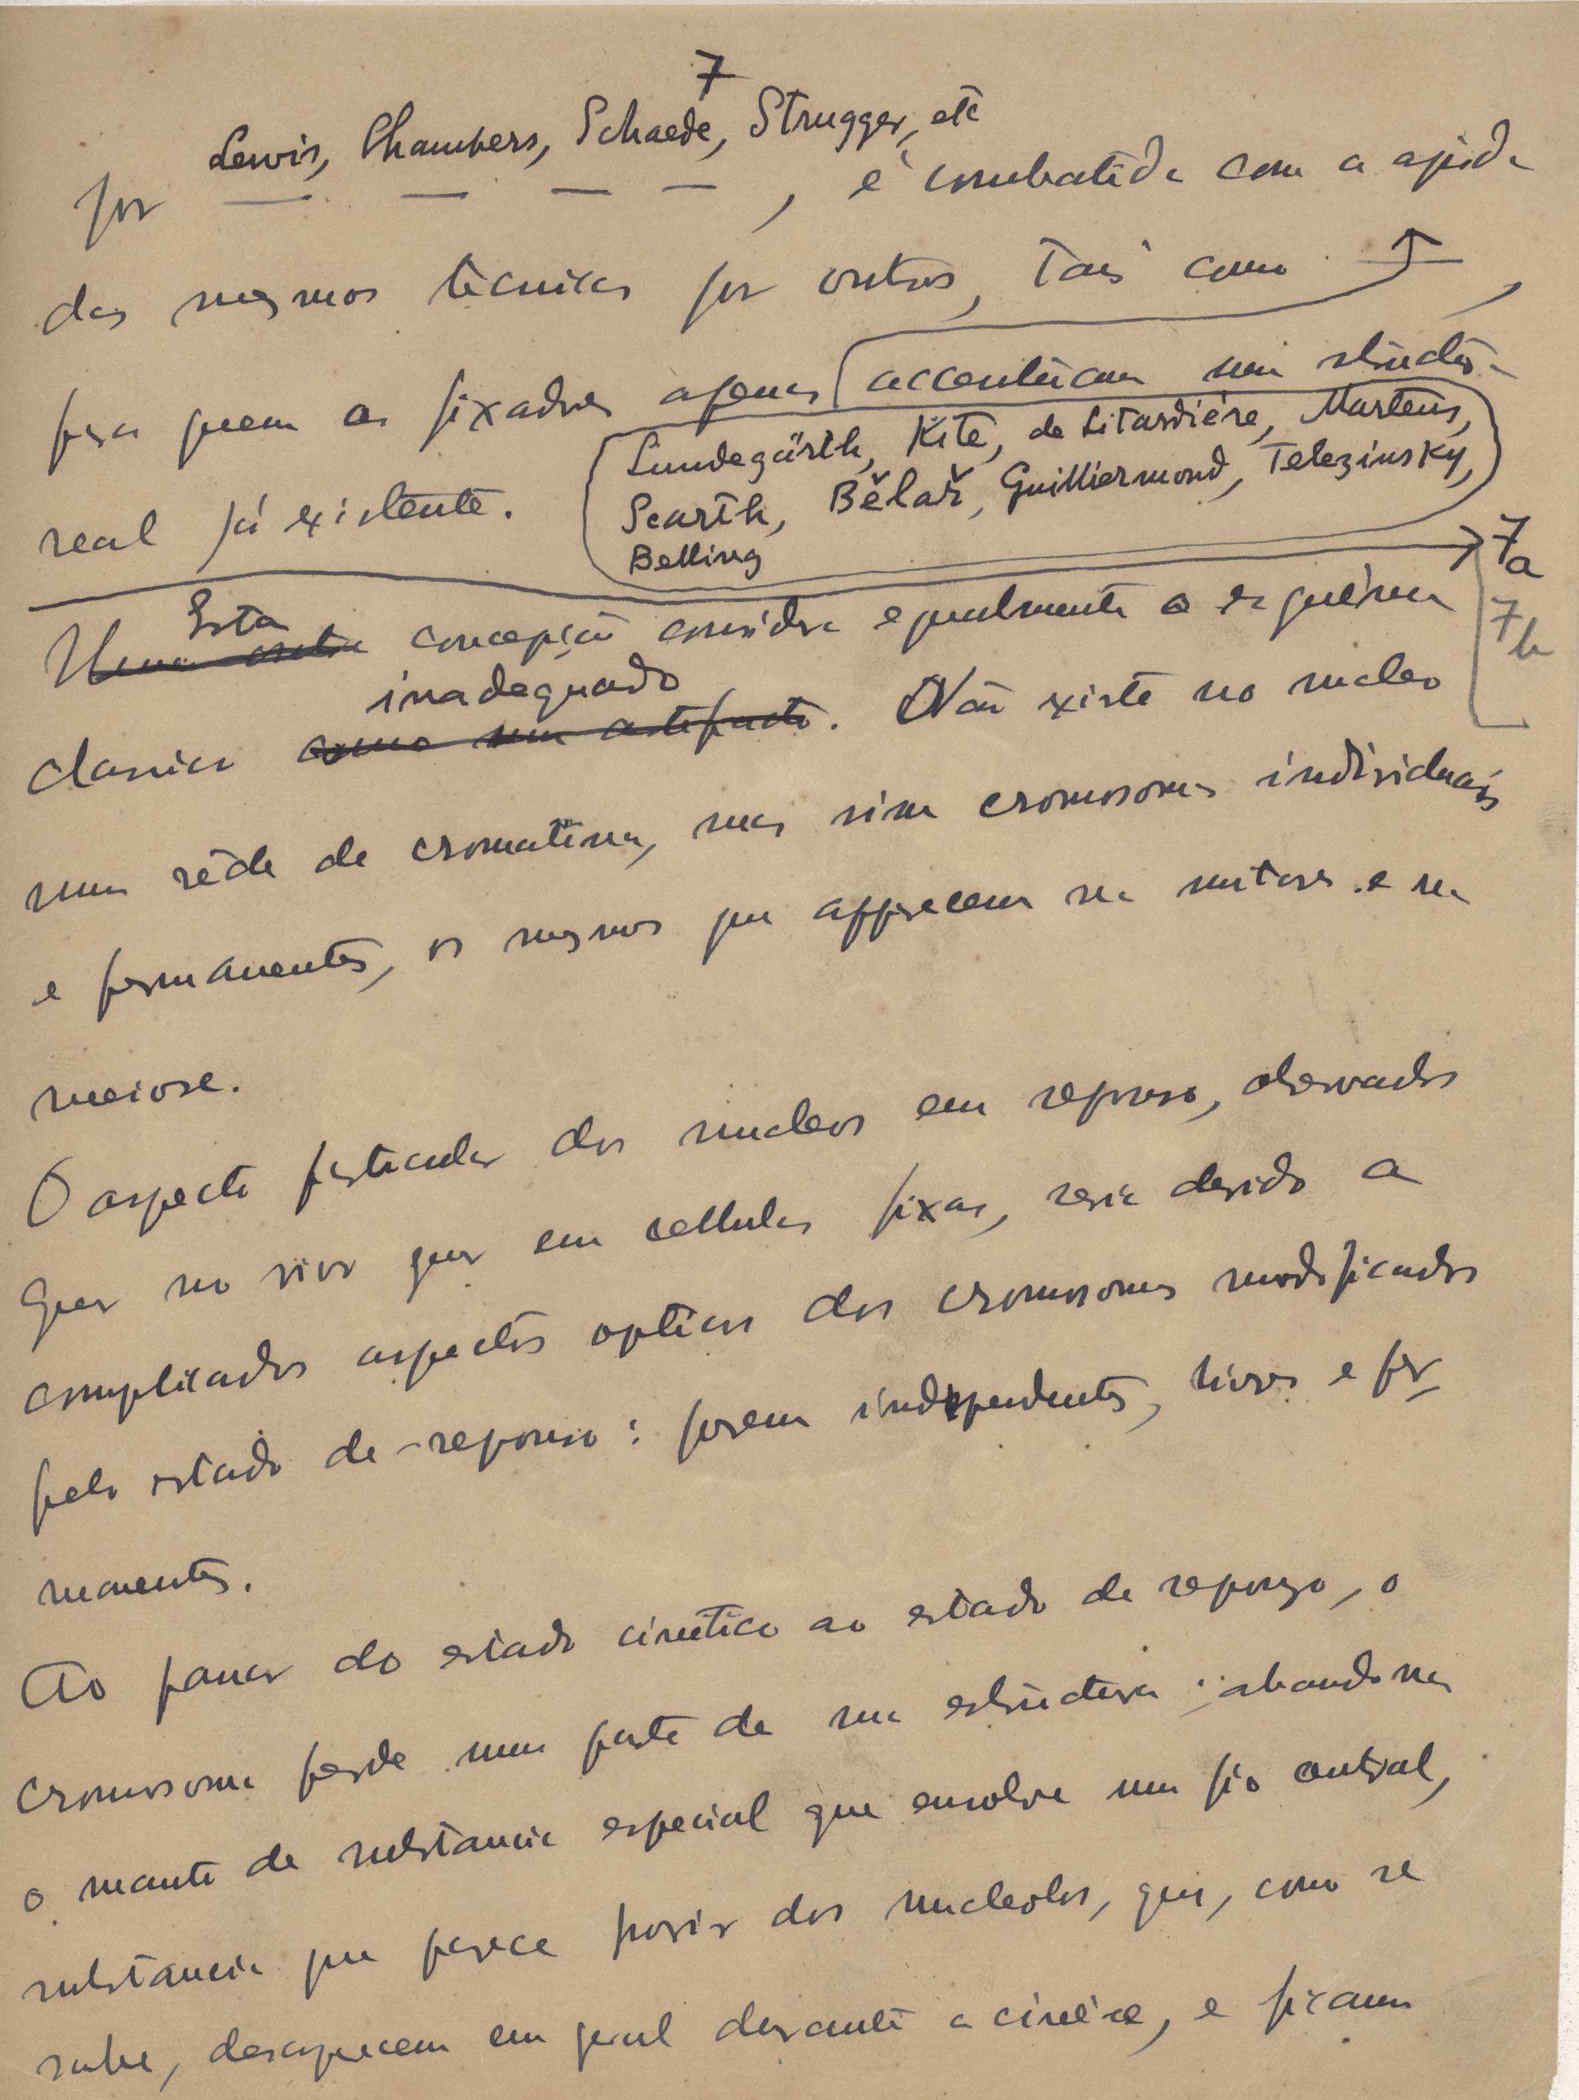 7
Lewis, Chambers, Schaede, Strugger, etc
por — — — —, é combatida com a ajuda
das mesmas técnicas por outros, tais como —,
para quem os fixadores apenas accentúam uma estructura
real já existente.
Lundegårth, Kite, de Litardiére, Martens,
Scarth, Bělař, Guilliermond, Telezinsky,
Belling
7a
7b
Esta
Uma outra concepção considera egualmente o esquêma
inadequado
classico como um artefacto. Não existe no nucleo
uma rêde de cromatina, mas sim cromosomas individuais
e permanentes, os mesmos que apparecem na mitose e na
meiose.
O aspecto particular dos nucleos em repouso, observados
quer no vivo quer em cellulas fixas, seria devido a
complicados aspectos opticos dos cromosomas modificados
pelo estado de repouso: porem independentes, livres e per-
manentes.
Ao passar do estado cinético ao estado de repouso, o
cromosoma perde uma parte de sua estructura: abandona
o manto de substancia especial que envolve um fio central,
substancia que parece provir dos nucleolos, que, como se
sabe, desapparecem em geral durante a cinése, e ficam